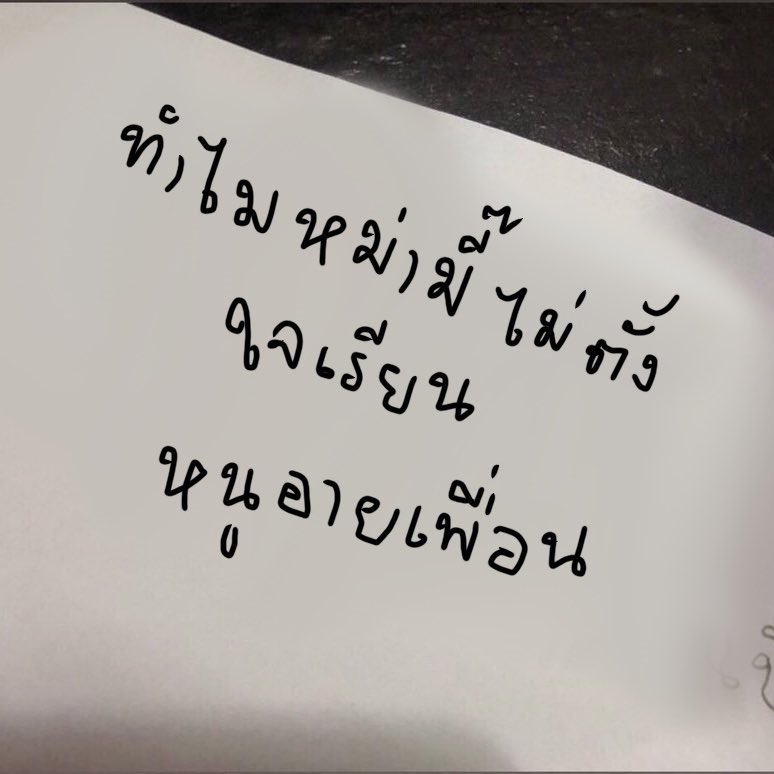 ทำไมหม่ามี๊ไม่ตั้ง
ใจเรียน
หนูอายเพื่อน